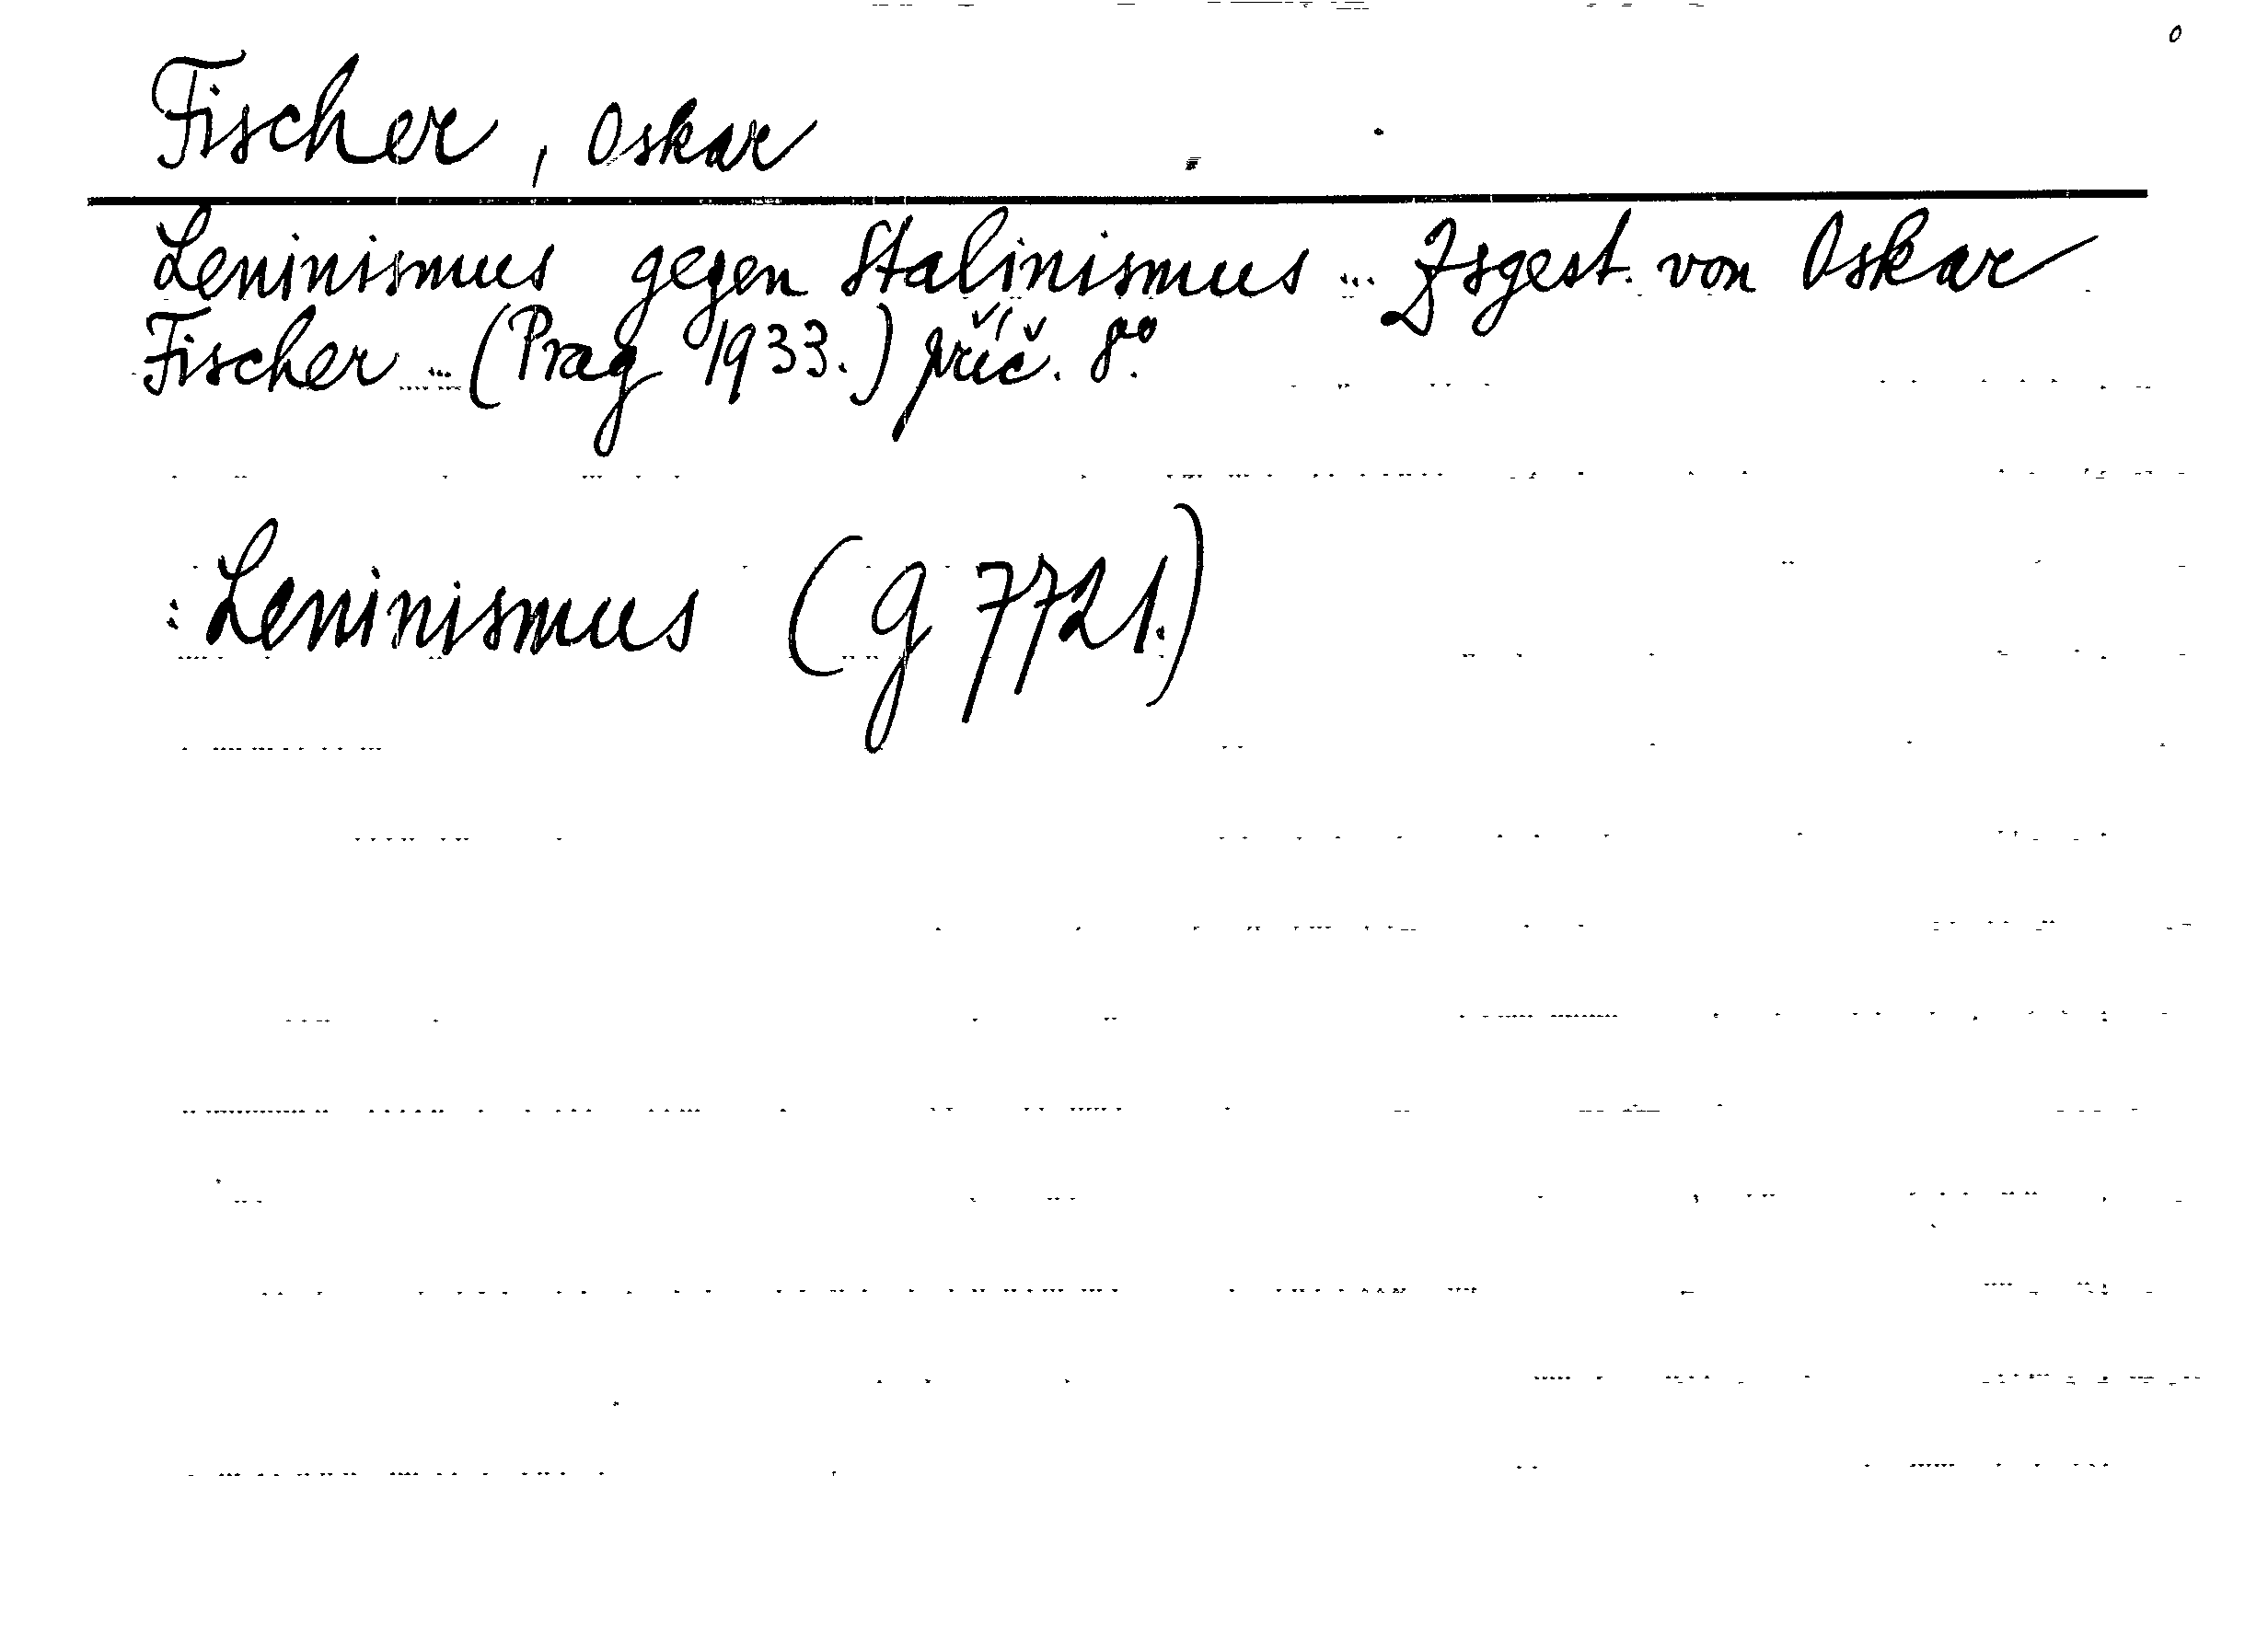 Fischer, Oskar
Leninismus gegen Stalinismus ... Zsgest. von Oskar
Fischer ... (Prag 1933.) příč. 8°.
: Leninismus (g 7721.)